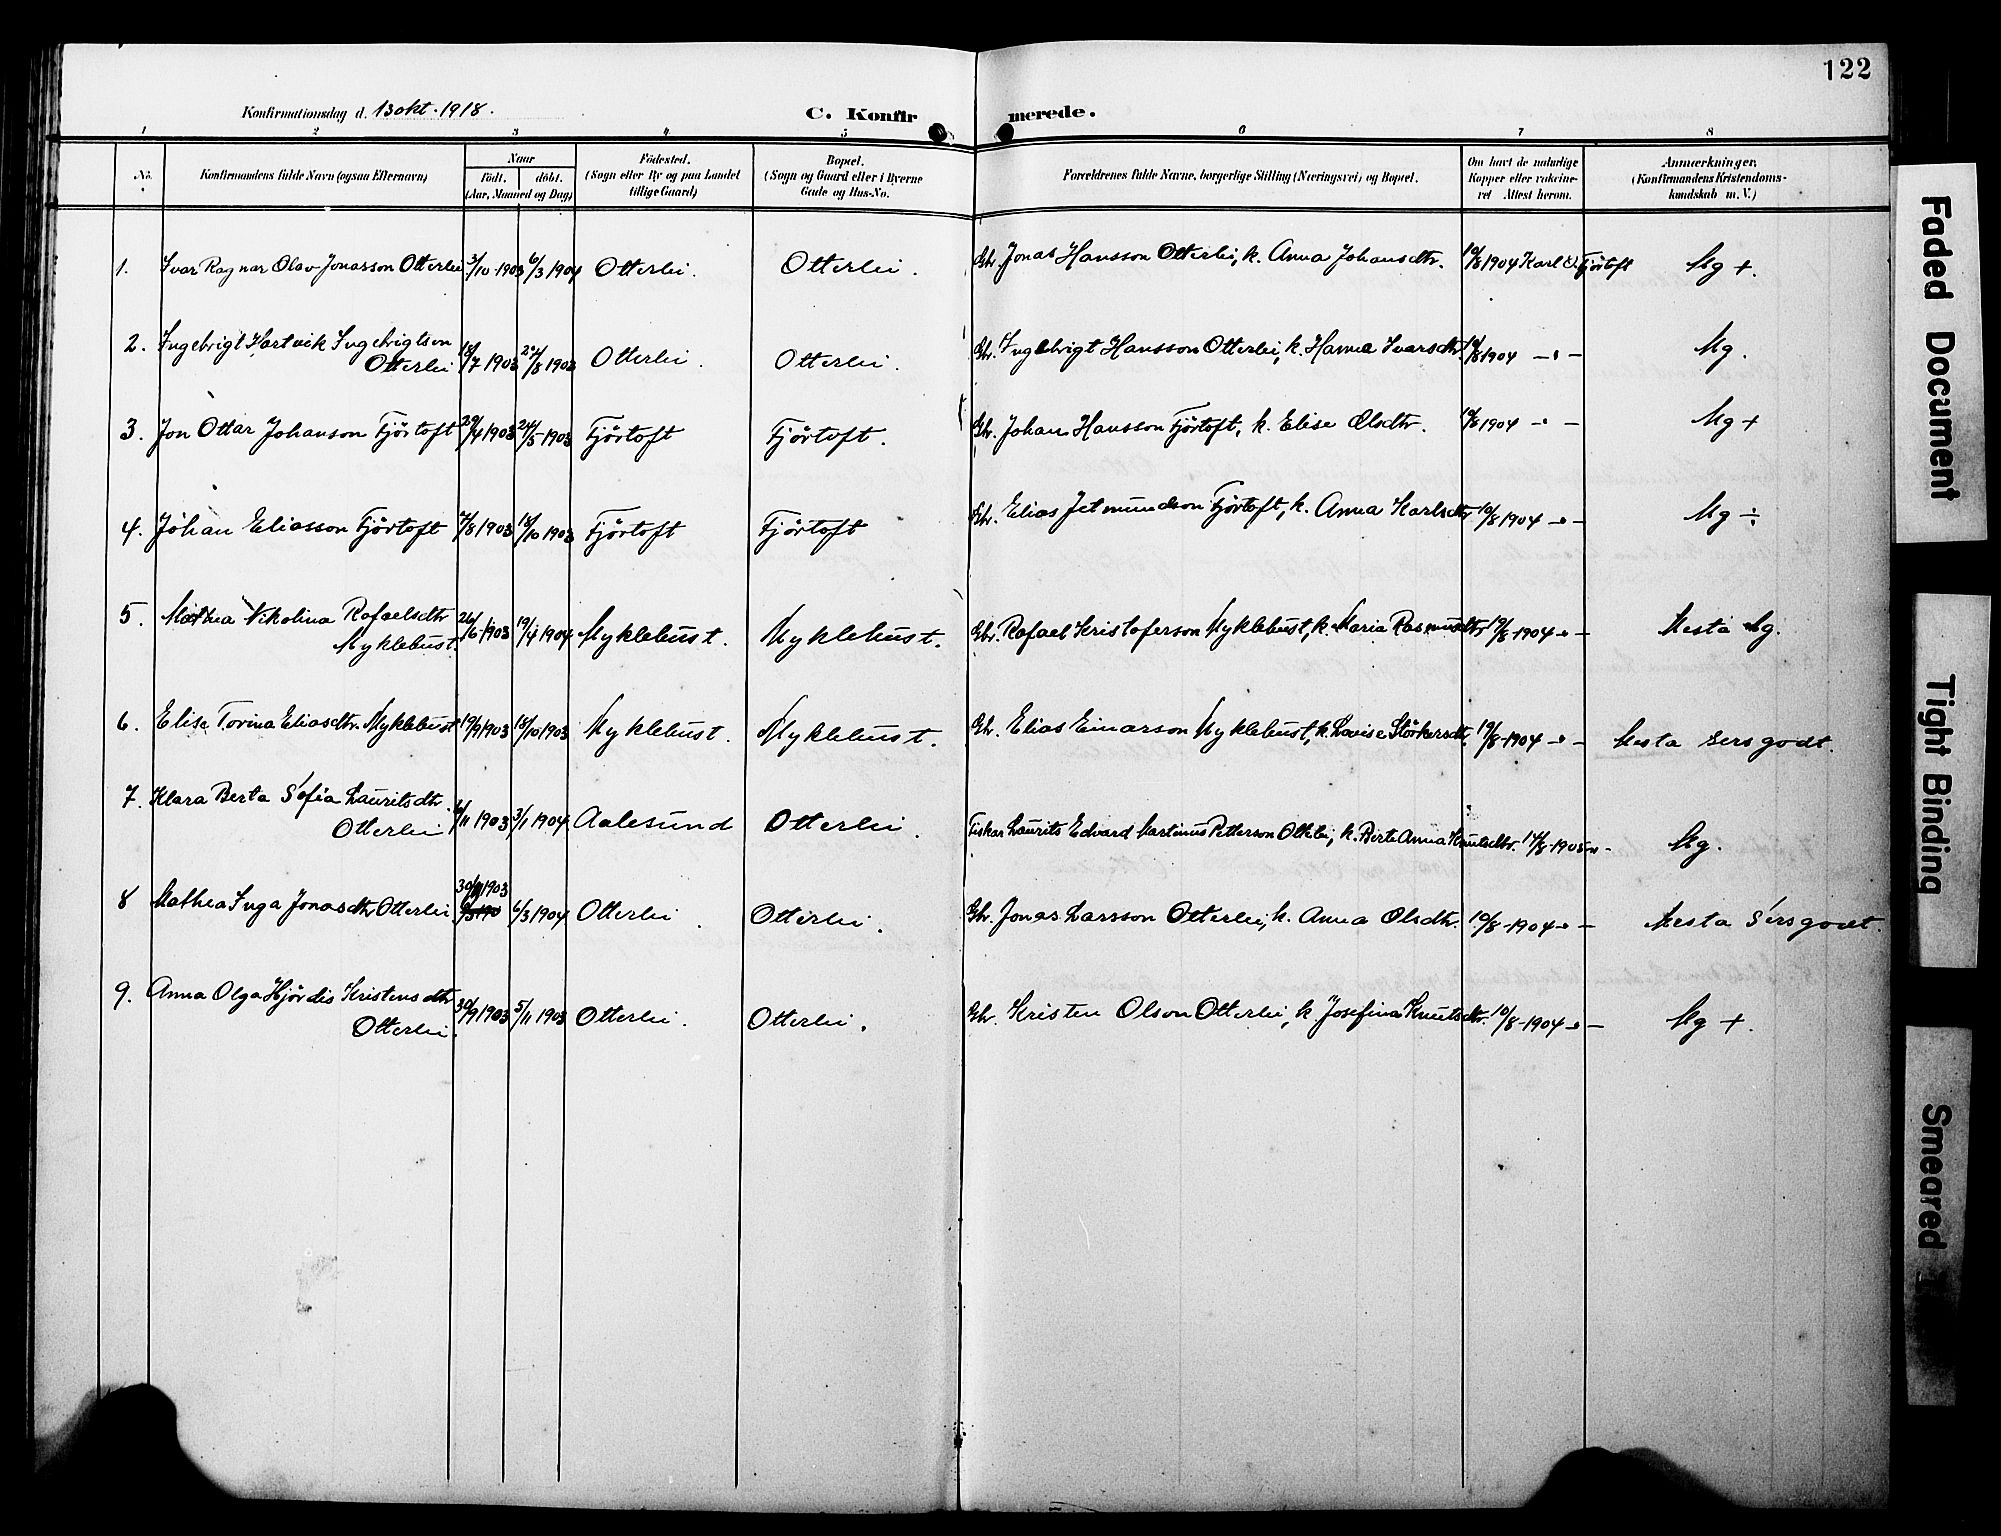 122
Konfirmationsdag d. 13 okt. 1918.
C. Konfirmerede.
1 2 3 4 5 6 7 8
No. Konfirmandens fulde Navn (ogsaa Efternavn) Naar Født. døbt. (Aar, Maaned og Dag) Fødested. (Sogn eller By og paa Landet tillige Gaard) Bopæl. (Sogn og Gaard eller i Byerne Gade og Hus-No. Forældrenes fulde Navne, borgerlige Stilling (Næringsvei) og Bopæl. Om havt de naturlige Kopper eller vakcineret Attest herom. Anmærkninger. (Konfirmandens Kristendomskundskab m. V.)
1. Ivar Ragnar Olav Jonasson Otterlei 3/10-1903 6/3 1904 Otterlei. Otterlei. Gbr. Jonas Hansson Otterlei, k. Anna Johansdtr. 10/8 1904 Karl O. Fjörtoft Mg +.
2. Ingebrigt Hartvik Ingebrigtson
Otterlei 18/7 1903 /8 1903 Otterlei. Otterlei. Gbr. Ingebrigt Hansson Otterlei, k. Hanna Ivarsdtr. 10/8 1904 —"— Mg.
3. Jon Ottar Johanson Fjörtoft 29/4 1903 24/5-1903 Fjörtoft Fjörtoft. Gbr. Johan Hansson Fjörtoft, k. Elise Olsdtr. 10/8 1904 —"— Mg +
4. Johan Eliasson Fjörtoft 7/8 1903 18/10 1903 Fjörtoft Fjörtoft Gbr. Elias Jetmundson Fjörtoft, k. Anna Karlsdtr 10/8 1904 —"— Mg ÷
5. Mathea Nikolina Rafaelsdtr
Myklebust. 26/6-1903 19/4 1904 Myklebust. Myklebust. Gbr. Rafael Kristoferson Myklebust, k. Maria Rasmusdtr 10/8-1904 —"— Mesta Mg.
6. Elise Torina Eliasdtr. Myklebust 19/9 1903 18/10 1903 Myklebust. Myklebust. Gbr. Elias Einarson Myklebust, k. Lovise Störkersdtr. 10/8-1904 —"— Mesta sersgodt.
7. Klara Berta Sofia Lauritsdtr.
Otterlei 6/11 1903 3/1 1904 Aalesund Otterlei. Fiskar Laurits Edvard Martinus Petterson Otterlei, k. Berte Anna Knutsdtr. 14/8-1905 —"— Mg.
8 Mathea Inga Jonasdtr Otterlei 30/11 1903 6/3 1904 Otterlei. Otterlei. Gbr. Jonas Larsson Otterlei, k. Anna Olsdtr. 10/8-1904 —"— Mesta Sersgodt.
9. Anna Olga Hjördis Kristensdtr
Otterlei. 30/9 1903 5/11 1903 Otterlei. Otterlei. Gbr. Kristen Olson Otterlei, k. Josefina Knutsdtr. 10/8-1904 —"— Mg +.
Faded Document
Tight Binding
Smeared